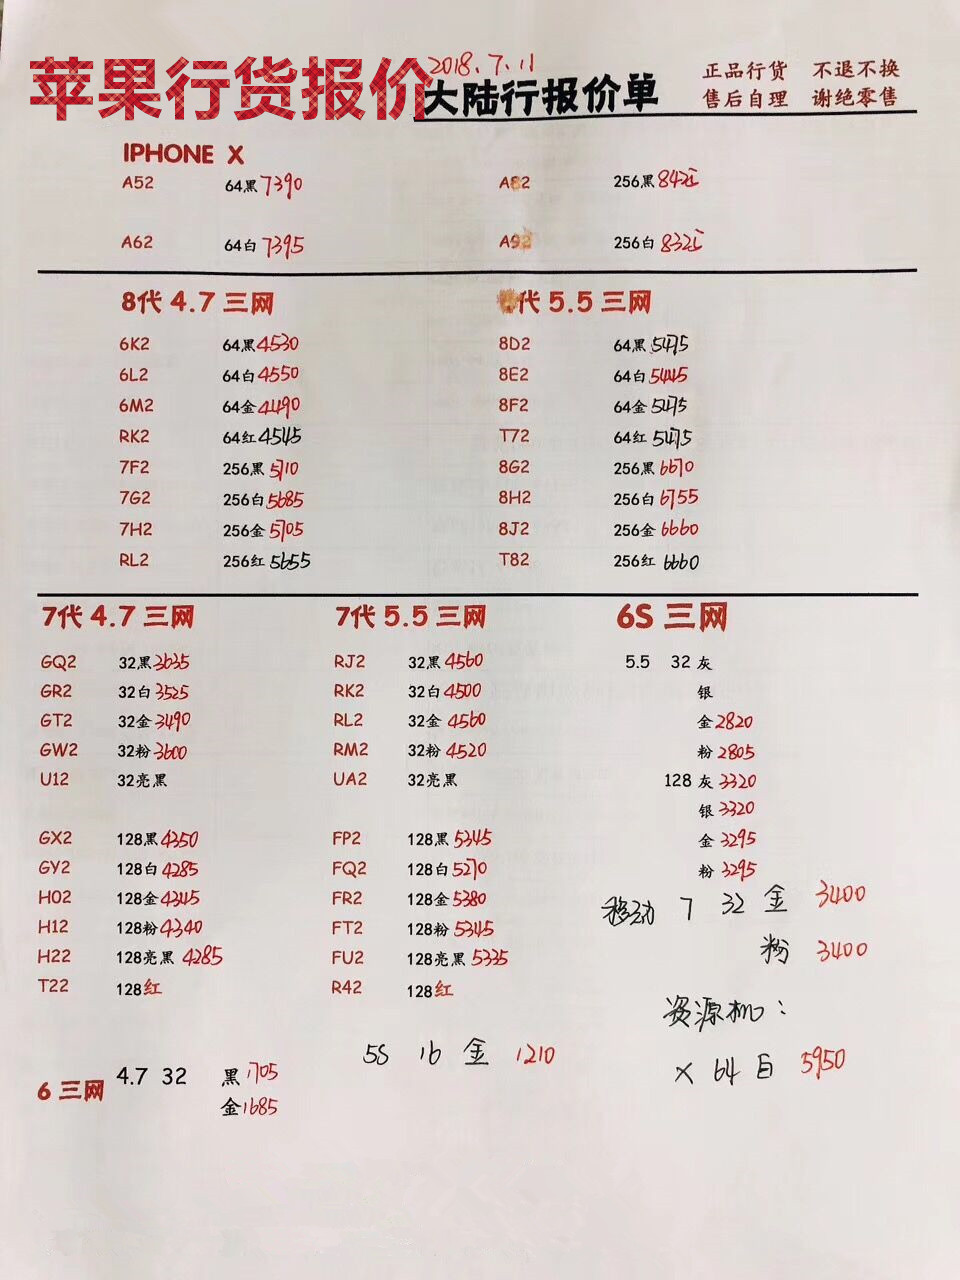 苹果行货报价
2018.7.11
大陆行报价单
正品行货 不退不换
售后自理 谢绝零售
IPHONE X
A52 64黑 7390 A82 256黑
A62 64白 7395 A92 256白
8代 4.7 三网 代 5.5 三网
6K2 64黑 4530 8D2 64黑 5475
6L2 64白 4550 8E2 64白 5445
6M2 64金 4490 8F2 64金 5475
RK2 64红 4545 T72 64红 5475
7F2 256黑 5710 8G2 256黑 6670
7G2 256白 5685 8H2 256白 6755
7H2 256金 5705 8J2 256金 6660
RL2 256红 5655 T82 256红 6660
7代 4.7 三网 7代 5.5 三网 6S 三网
GQ2 32黑 3635 RJ2 32黑 4560 5.5 32 灰
GR2 32白 3525 RK2 32白 4500 银
GT2 32金 3490 RL2 32金 4560 金 2820
GW2 32粉 3600 RM2 32粉 4520 粉 2805
U12 32亮黑 UA2 32亮黑 128 灰 3320
银 3320
GX2 128黑 4350 FP2 128黑 5345 金 3295
GY2 128白 4285 FQ2 128白 5270 粉 3295
H02 128金 4345 FR2 128金 5380 移动 7 32 金 3400
H12 128粉 4340 FT2 128粉 5345 粉 3400
H22 128亮黑 4285 FU2 128亮黑 5335
T22 128红 R42 128红
资源机：
5S 16 金 1210 X 64 白 5950
6 三网 4.7 32 黑 1705
金 1685